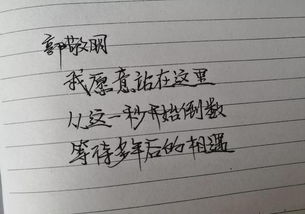 郭敬明
我愿意站在这里
从这一秒开始倒数
等待多年后的相遇